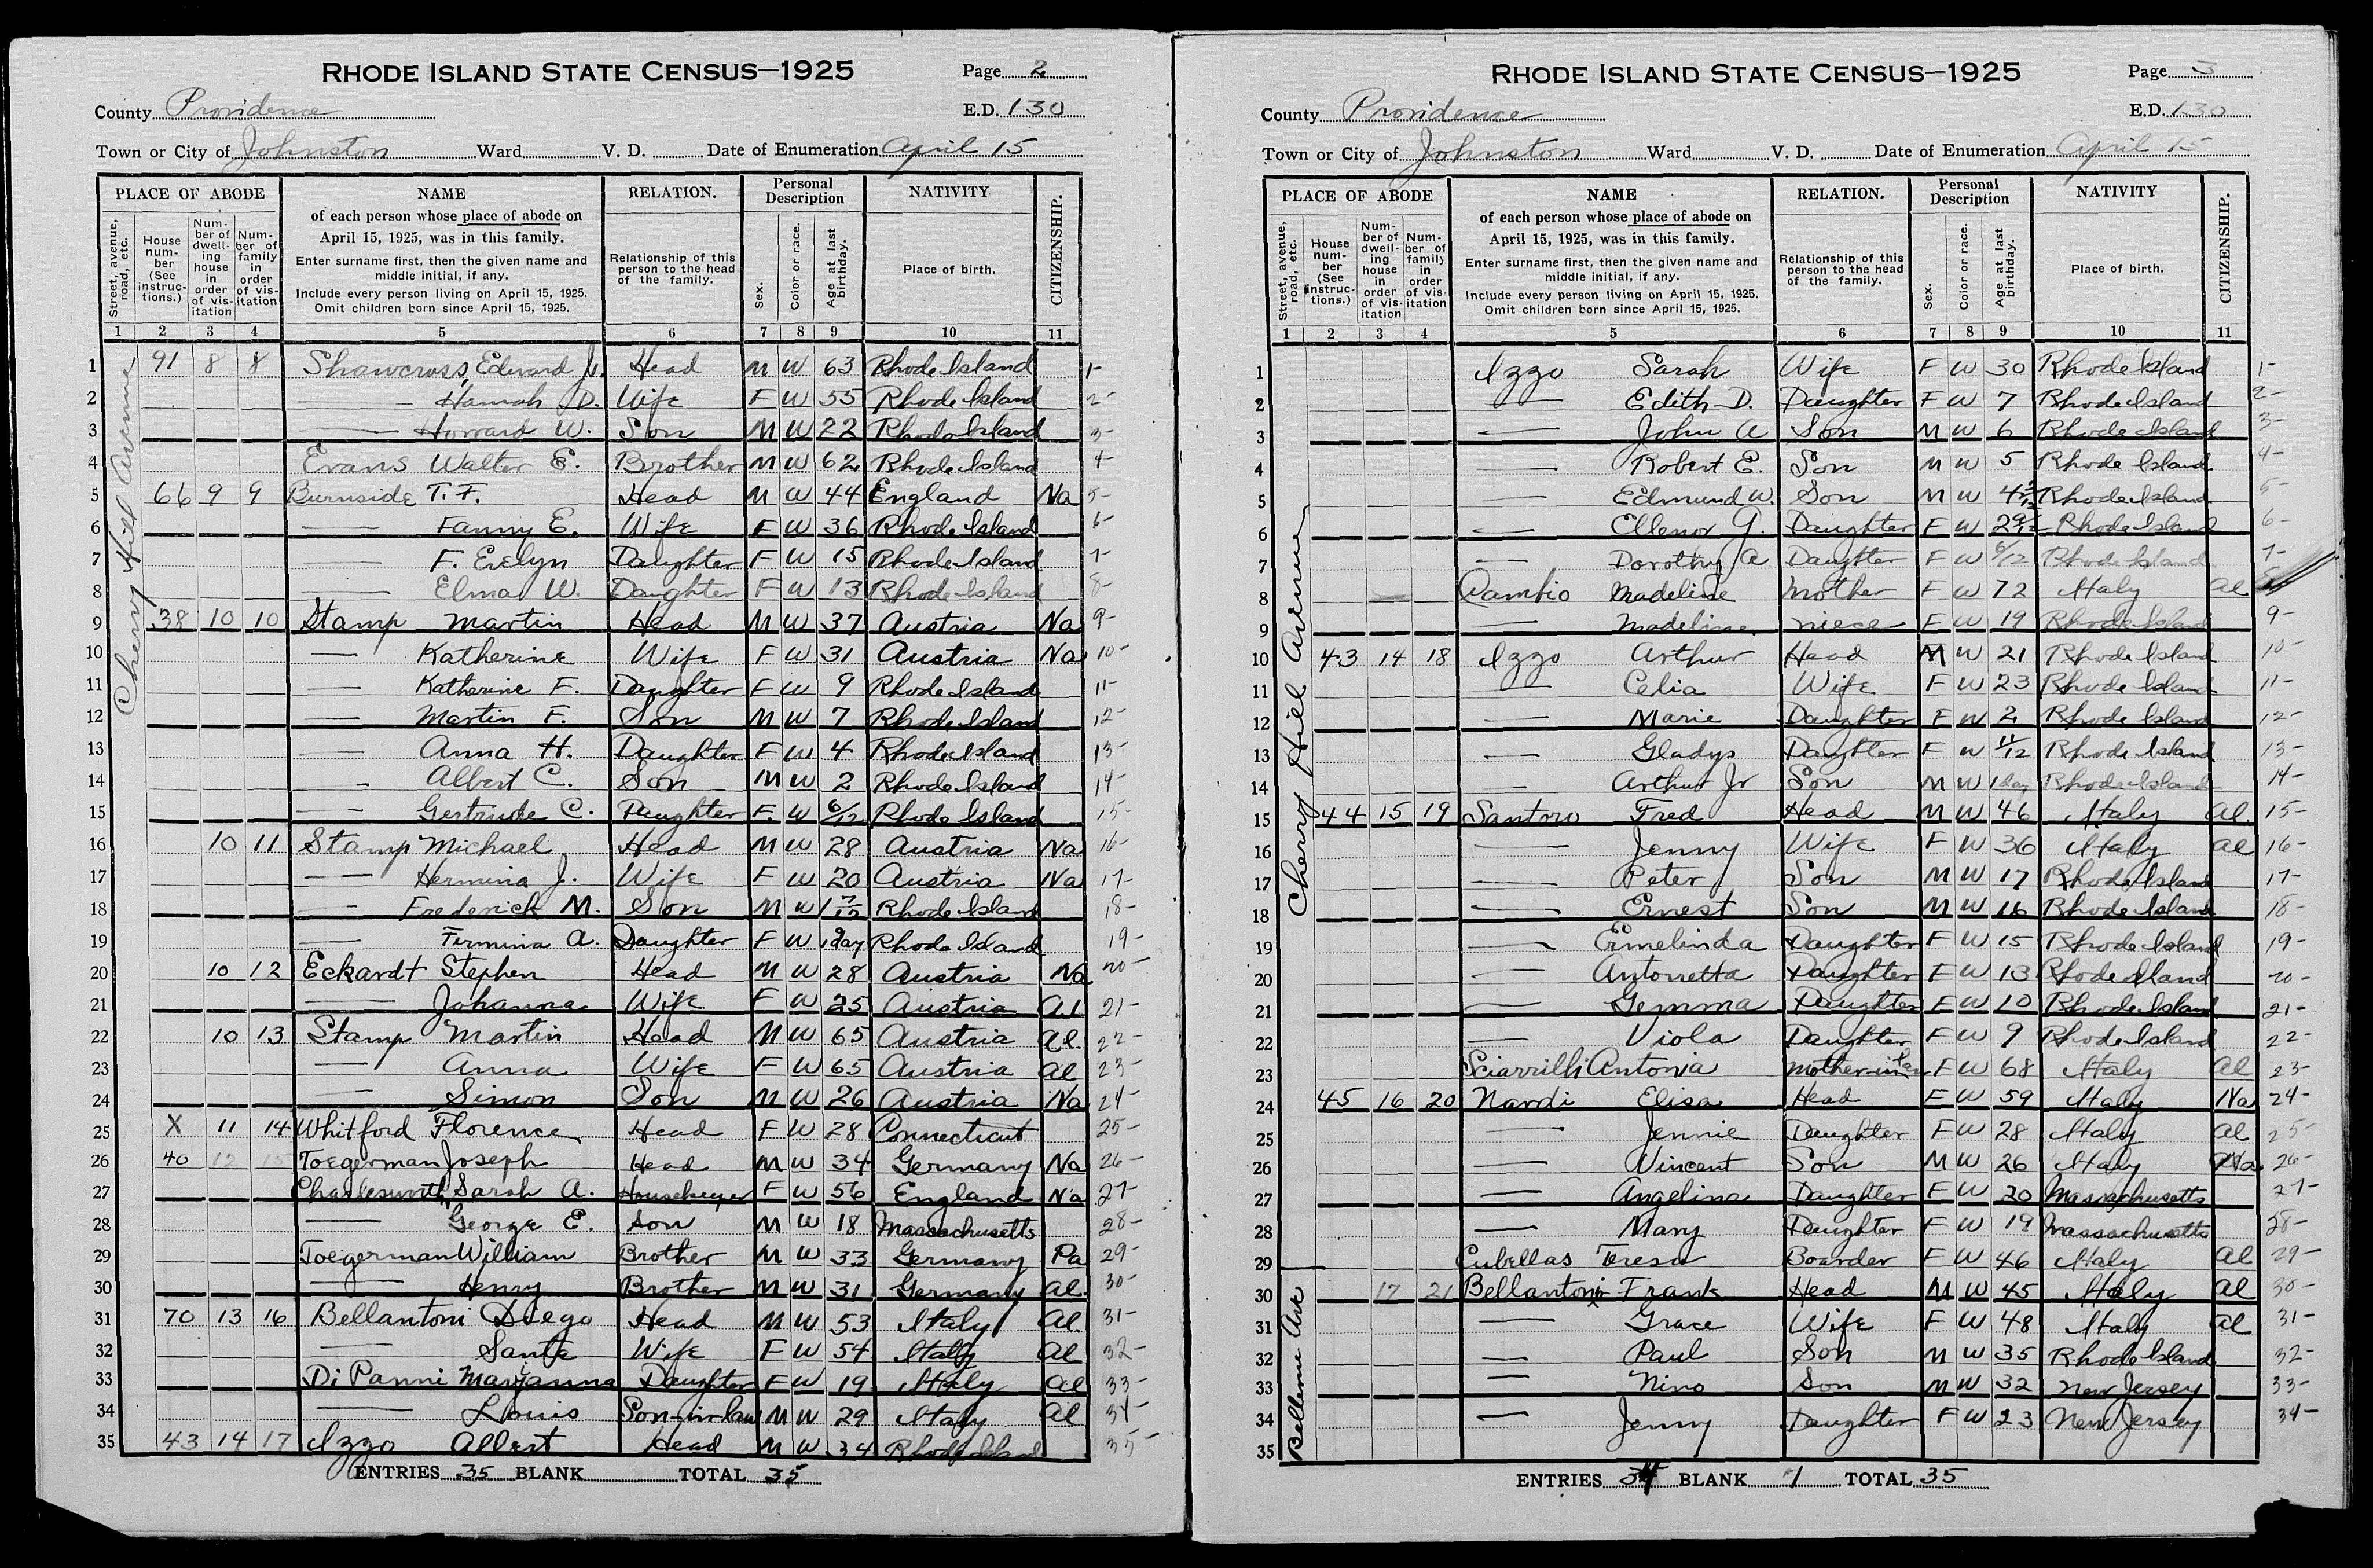 RHODE ISLAND STATE CENSUS—1925 Page 2
County Providence E.D. 130
Town or City of Johnston Ward V. D. Date of Enumeration April 15
PLACE OF ABODE NAME RELATION. Personal Description NATIVITY CITIZENSHIP.
Street, avenue, road, etc.
House number (See instructions.)
Number of dwelling house in order of visitation
Number of family in order of visitation
of each person whose place of abode on April 15, 1925, was in this family.
Enter surname first, then the given name and middle initial, if any.
Include every person living on April 15, 1925. Omit children born since April 15, 1925.
Relationship of this person to the head of the family.
Sex. Color or race. Age at last birthday. Place of birth.
1 2 3 4 5 6 7 8 9 10 11
Cherry Hill Avenue
1 91 8 8 Shawcross, Edward Jr. Head M W 63 Rhode Island 1-
2 — Hannah D. Wife F W 55 Rhode Island 2-
3 — Howard W. Son M W 22 Rhode Island 3-
4 Evans Walter E. Brother M W 62 Rhode Island 4-
5 66 9 9 Burnside T. F. Head M W 44 England Na 5-
6 — Fanny E. Wife F W 36 Rhode Island 6-
7 — F. Evelyn Daughter F W 15 Rhode Island 7-
8 — Elma W. Daughter F W 13 Rhode Island 8-
9 38 10 10 Stamp Martin Head M W 37 Austria Na 9-
10 — Katherine Wife F W 31 Austria Na 10-
11 — Katherine F. Daughter F W 9 Rhode Island 11-
12 — Martin F. Son M W 7 Rhode Island 12-
13 — Anna H. Daughter F W 4 Rhode Island 13-
14 - Albert C. Son M W 2 Rhode Island 14-
15 — Gertrude C. Daughter F. W 6/12 Rhode Island 15-
16 10 11 Stamp Michael Head M W 28 Austria Na 16-
17 — Hermina J. Wife F W 20 Austria Na 17-
18 — Frederick M. Son M W 1 7/12 Rhode Island 18-
19 — Firmina A. Daughter F W 1 day Rhode Island 19-
20 10 12 Eckardt Stephen Head M W 28 Austria Na 20-
21 — Johanna Wife F W 25 Austria Al 21-
22 10 13 Stamp Martin Head M W 65 Austria Al. 22-
23 — Anna Wife F W 65 Austria Al 23-
24 — Simon Son M W 26 Austria Na 24-
25 X 11 14 Whitford Florence Head F W 28 Connecticut 25-
26 40 12 15 Toegerman Joseph Head M W 34 Germany Na 26-
27 Charlesworth, Sarah A. Housekeeper F W 56 England Na 27-
28 — George E. Son M W 18 Massachusetts 28-
29 Toegerman William Brother M W 33 Germany Pa 29-
30 — Henry Brother M W 31 Germany Al. 30-
31 70 13 16 Bellantoni Diego Head M W 53 Italy Al. 31-
32 — Santa Wife F W 54 Italy Al 32-
33 Di Panni Marianna Daughter F W 19 Italy Al 33-
34 — Louis Son-in-law M W 29 Italy Al 34-
35 43 14 17 Izzo Albert Head M W 34 Rhode Island 35-
ENTRIES 35 BLANK TOTAL 35
RHODE ISLAND STATE CENSUS—1925 Page 3
County Providence E.D. 130
Town or City of Johnston Ward V. D. Date of Enumeration April 15
PLACE OF ABODE NAME RELATION. Personal Description NATIVITY CITIZENSHIP.
Street, avenue, road, etc.
House number (See instructions.)
Number of dwelling house in order of visitation
Number of family in order of visitation
of each person whose place of abode on April 15, 1925, was in this family.
Enter surname first, then the given name and middle initial, if any.
Include every person living on April 15, 1925. Omit children born since April 15, 1925.
Relationship of this person to the head of the family.
Sex. Color or race. Age at last birthday. Place of birth.
1 2 3 4 5 6 7 8 9 10 11
Cherry Hill Avenue
1 Izzo Sarah Wife F W 30 Rhode Island 1-
2 — Edith D. Daughter F W 7 Rhode Island 2-
3 — John A Son M W 6 Rhode Island 3-
4 — Robert E. Son M W 5 Rhode Island 4-
5 — Edmund W. Son M W 4 Rhode Island 5-
6 — Ellenor G. Daughter F W 2 Rhode Island 6-
7 — Dorothy A Daughter F W Rhode Island 7-
8 Madeline Mother F W 72 Italy Al
9 — Madeline niece F W 19 Rhode Island 9-
10 43 14 18 Izzo Arthur Head M W 21 Rhode Island 10-
11 — Celia Wife F W 23 Rhode Island 11-
12 — Marie Daughter F W 2 Rhode Island 12-
13 — Gladys Daughter F W 11/12 Rhode Island 13-
14 — Arthur Jr Son M W 1 day Rhode Island 14-
15 44 15 19 Santoro Fred Head M W 46 Italy Al. 15-
16 — Jenny Wife F W 36 Italy Al 16-
17 — Peter Son M W 17 Rhode Island 17-
18 — Ernest Son M W 16 Rhode Island 18-
19 — Ermelinda Daughter F W 15 Rhode Island 19-
20 — Antonetta Daughter F W 13 Rhode Island 20-
21 — Gemma Daughter F W 10 Rhode Island 21-
22 — Viola Daughter F W 9 Rhode Island 22-
23 Sciarrilli Antonia Mother-in-law F W 68 Italy Al 23-
24 45 16 20 Nardi Elisa Head F W 59 Italy Na 24-
25 — Jennie Daughter F W 28 Italy Al 25-
26 — Vincent Son M W 26 Italy Na 26-
27 — Angelina Daughter F W 20 Massachusetts 27-
28 — Mary Daughter F W 19 Massachusetts 28-
29 Cubellas Teresa Boarder F W 46 Italy Al 29-
Bellemi Ave
30 17 21 Bellantoni Frank Head M W 45 Italy Al 30-
31 — Grace Wife F W 48 Italy Al 31-
32 — Paul Son M W 35 Rhode Island 32-
33 — Nino Son M W 32 New Jersey 33-
34 — Jenny Daughter F W 23 New Jersey 34-
35
ENTRIES 34 BLANK 1 TOTAL 35